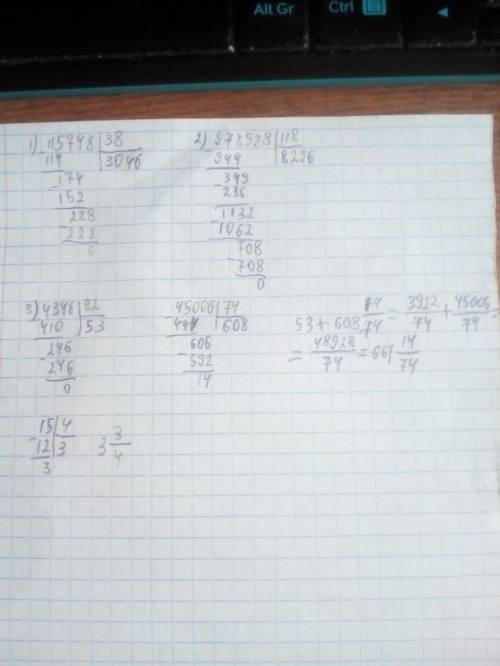 Alt Gr
Ctrl
1) 115748 | 38
114 | 3046
174
152
228
228
0
2) 978928 | 118
944 | 8296
349
236
1132
1062
708
708
0
3) 4346 | 82
410 | 53
246
246
0
45006 | 74
444 | 608
606
592
14
53 + 608 14/74 = 3922/74 + 45006/74 =
= 48928/74 = 661 14/74
15 | 4
12 | 3
3
3 3/4